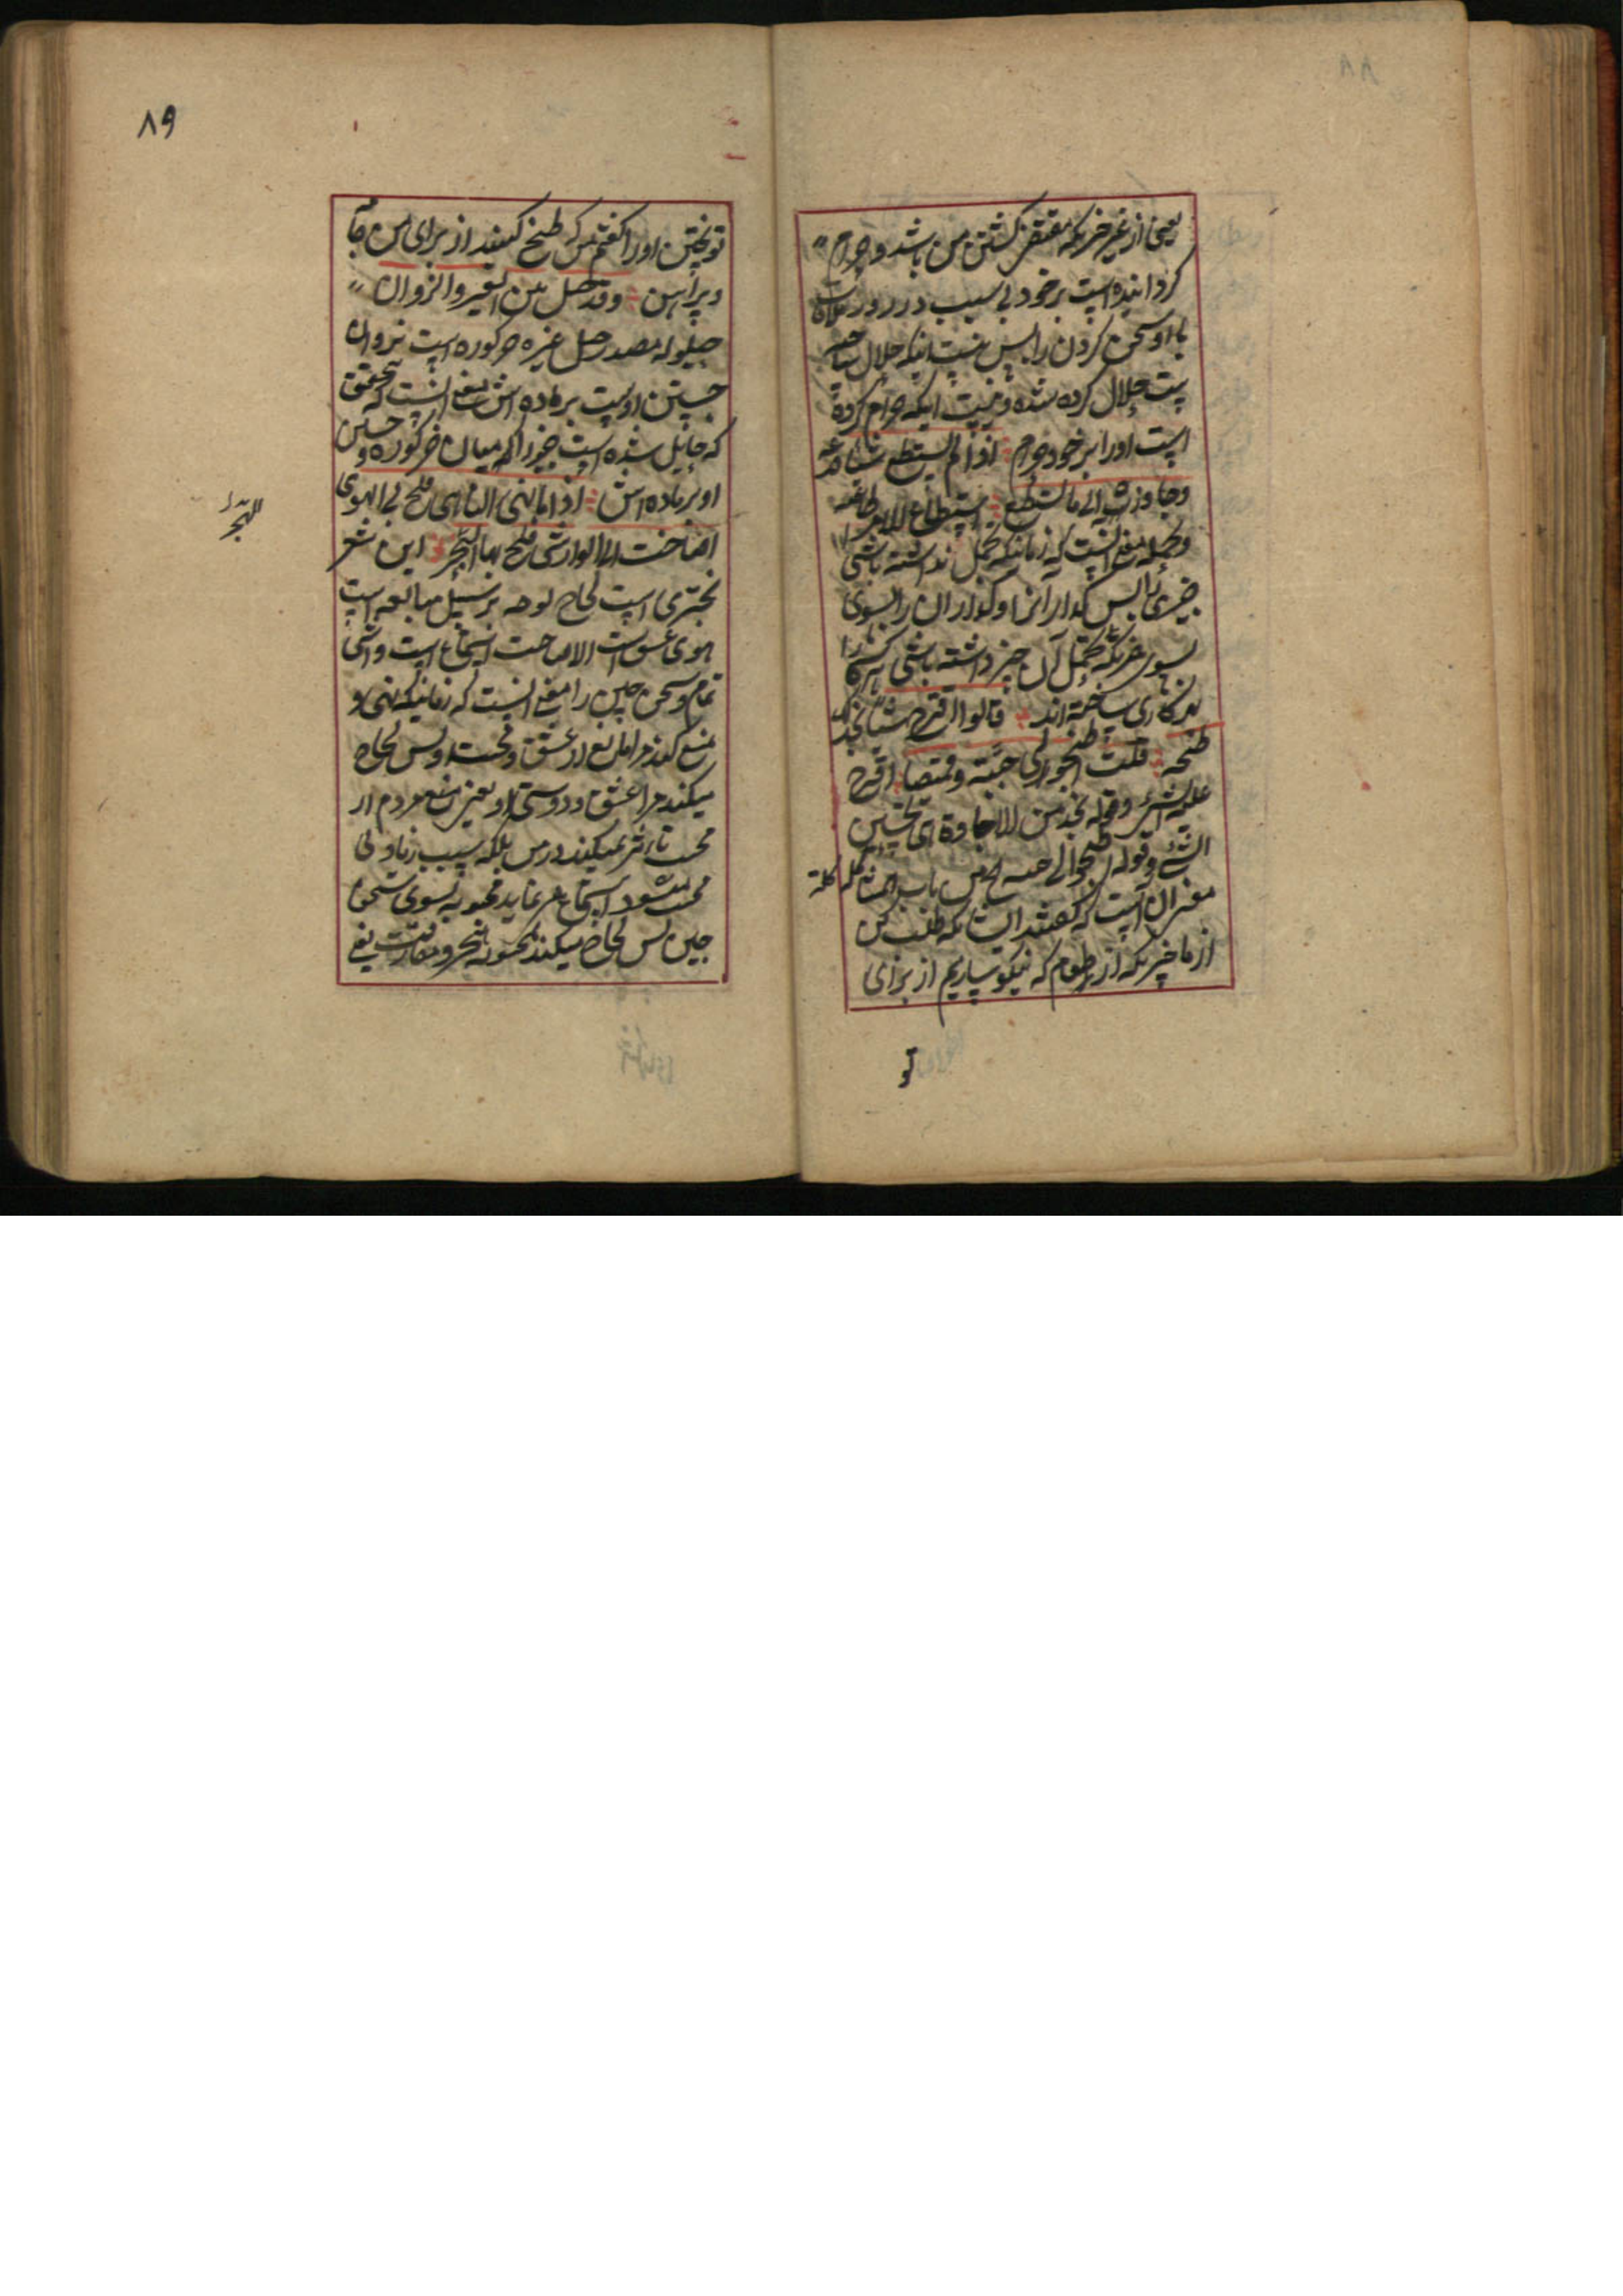 یعنی از غیر خبریکه مقتضی کشتن من باشد و حرام
کردانیده است بر خود بی سبب در روز ملاقات
با او سخن کردن را پس نیست اینکه حلال ساخته
است حلال کرده شده و نیست اینکه حرام کرده
است او را بر خود حرام اذا لم تستطع شیئا فدعه
وجاوزه الی ما تستطیع استطاع الامر طاقه
معنی انست که زمانیکه تحمل نداشته باشی
چیزی را پس کذار آنرا و کذاران را بسوی
بسوی خریکه تحمل آن چیز داشته باشی هر کسی را
بهر کاری ساخته اند قالوا اقترح شیئا نجد لک
طبخه قلت اطبخوا لی جبة وقمیصا اقترح
علیه الشیء وقوله نجد من الاجادة ای تحسین
الشیء وقوله اطبخوا لی
معنی ان است که گفتند ایشان که طلب کن
از ما چیزیکه از طعام که نیکو سازیم از برای
تو
۸۹
تو پختن او را گفتم من که طبخ کنید از برای من جامه
و پیراهن وقد حیل بین العیر والنزوان
حیلوله مصدر حیل عیره خر کوره است نزوان
جستن اوست بر ماده اش معنی انست که تحقیق
که حایل شده است چیزی که میان خر کوره و جستن
او بر ماده اش اذا ما نهی الناهی فلج بی الهوی
اصاخت الی الواشی فلج بها الهجر این شعر
بحتری است لجاج بر سبیل مبالغه است
هوی عشق است الاصاخت استماع است واشی
تمام و سخن چین را معنی انست که زمانیکه نهی و
منع کند مرا مانع از عشق و محبت او پس لجاج
میکند مرا عشق و دوستی او یعنی منع مردم از
محبت تاثیر نمیکند در من بلکه سبب زیادتی
محبت میشود استماع می نماید محبوبه بسوی سخن
چین پس لجاج میکند بمحبوبه هجر و مفارقت یعنی
الهجر